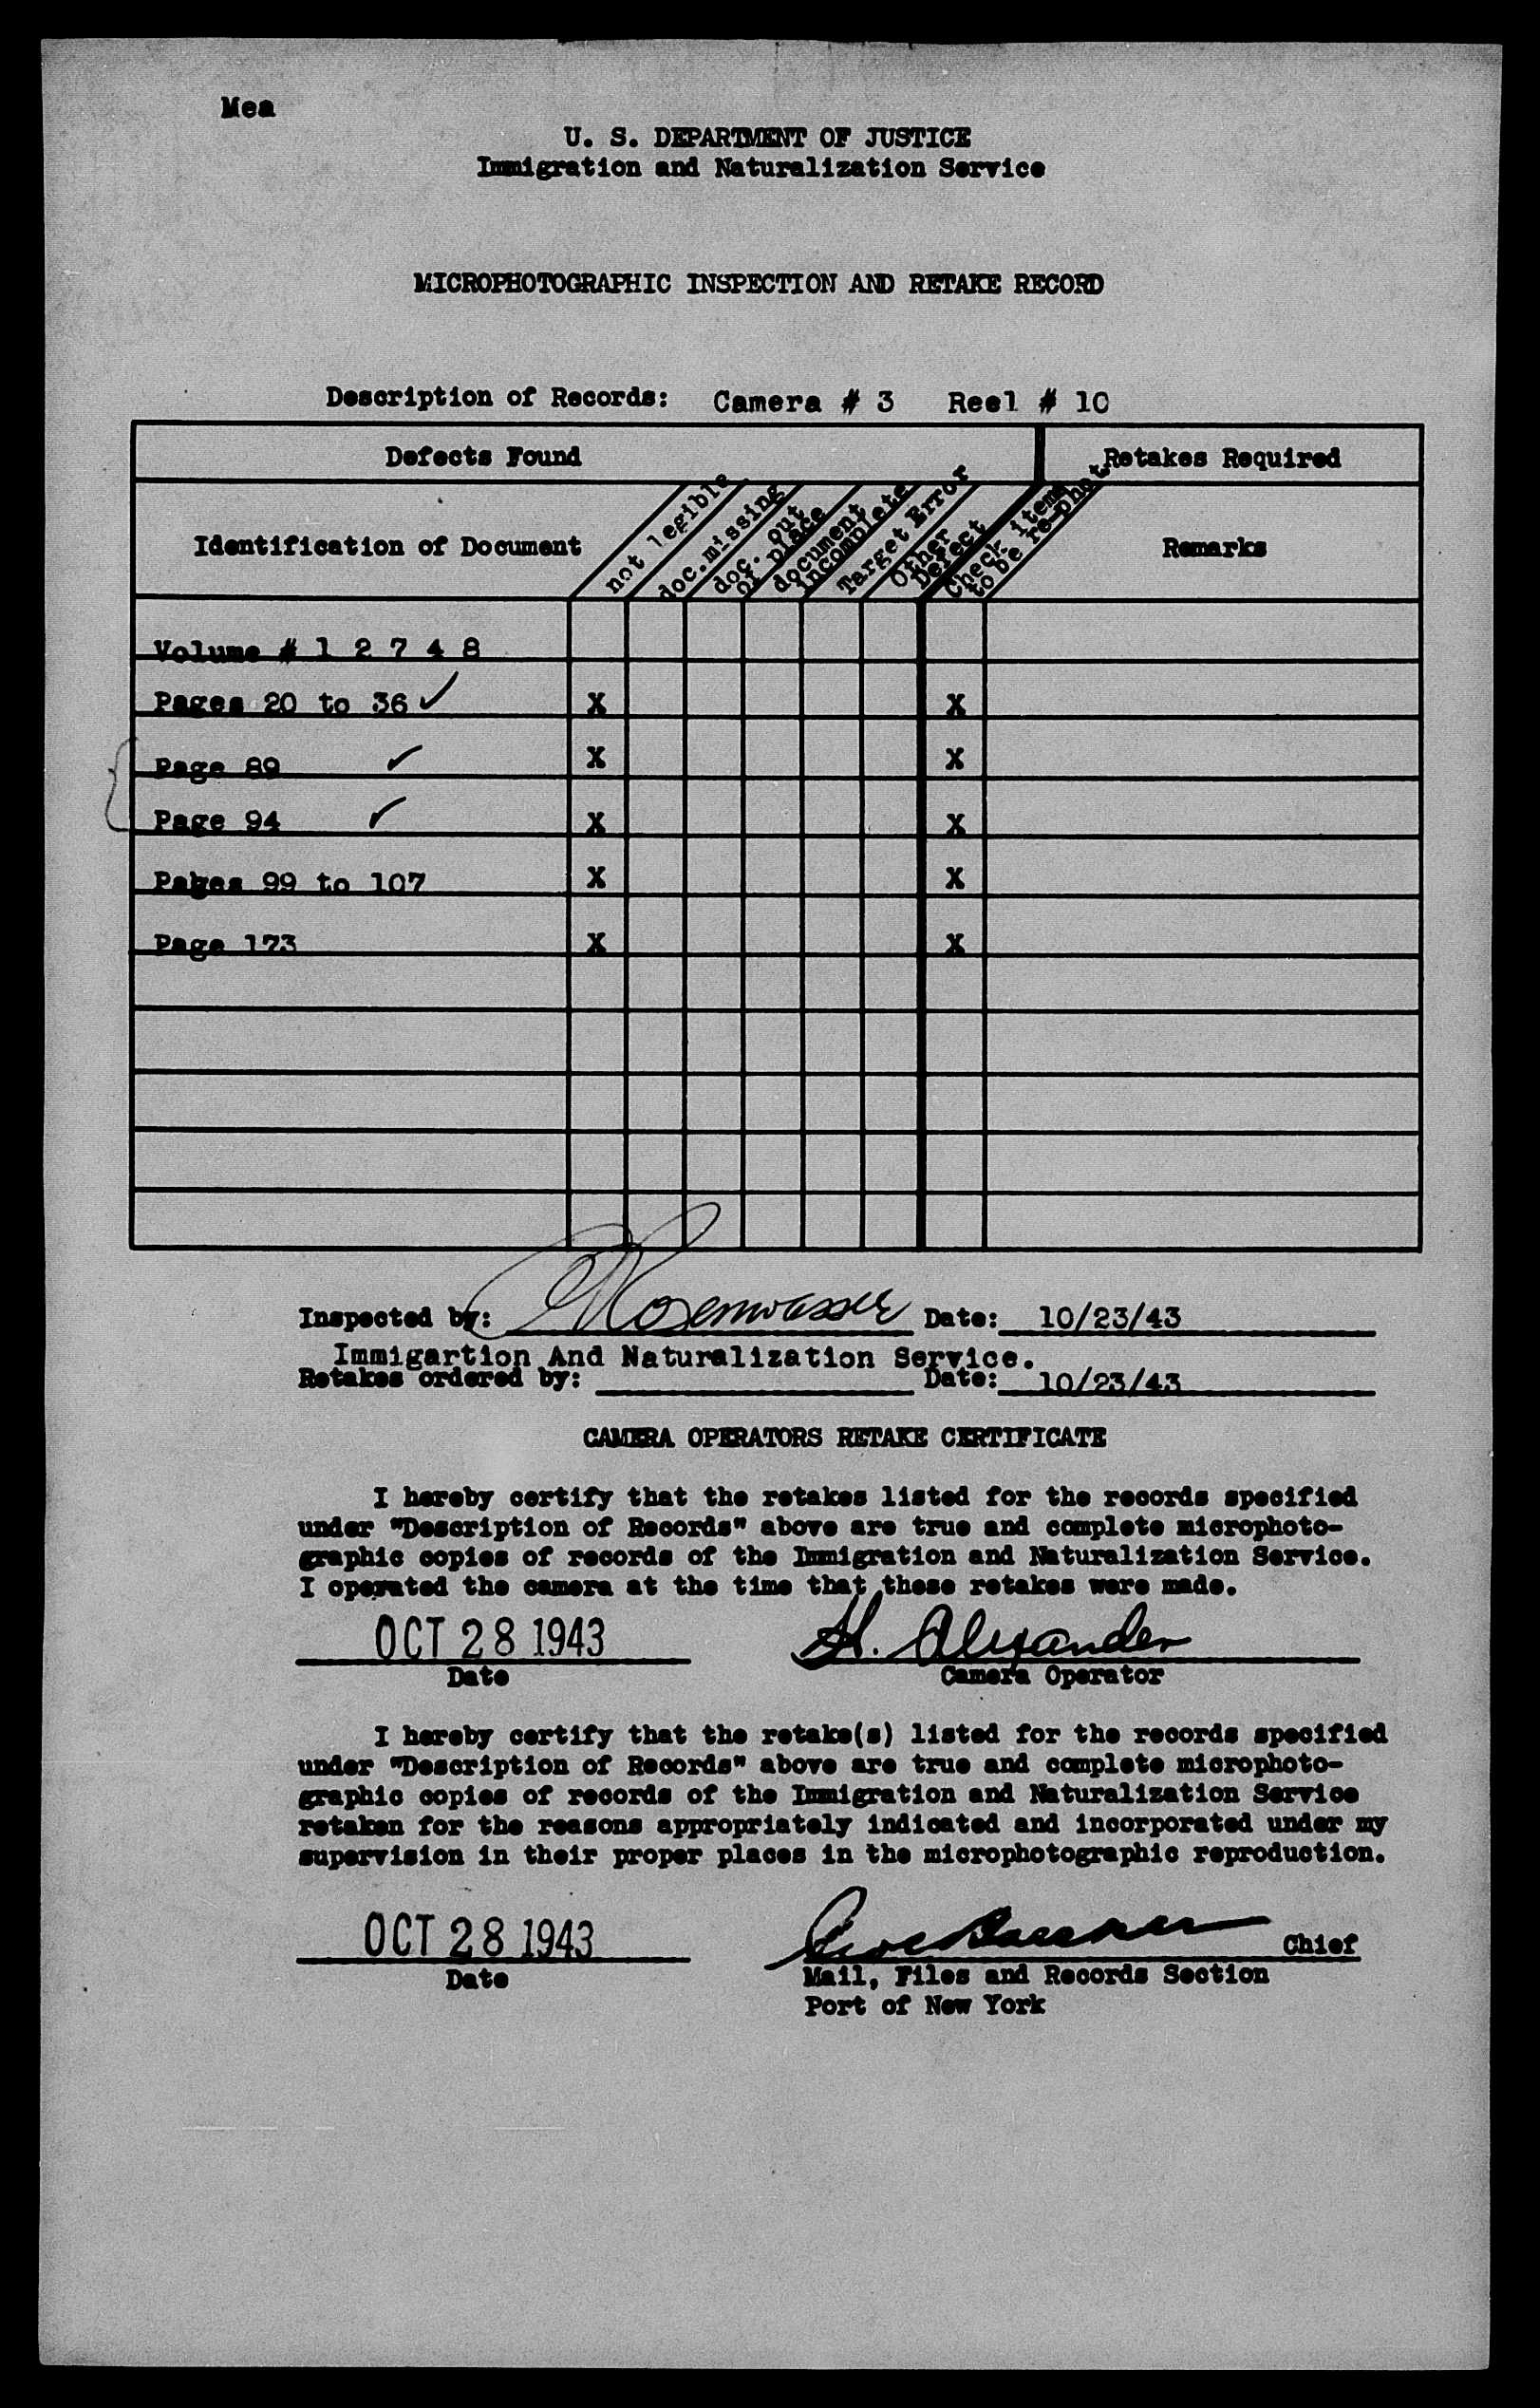 Mea
U. S. DEPARTMENT OF JUSTICE
Immigration and Naturalization Service
MICROPHOTOGRAPHIC INSPECTION AND RETAKE RECORD
Description of Records: Camera # 3 Reel # 10
Defects Found
Retakes Required
Identification of Document
not legible
doc.missing
doc. out
of place
document
incomplete
Target Error
Other
Defect
Check items
to be re-phot
Remarks
Volume # 1 2 7 4 8
Pages 20 to 36 ✓ X X
Page 89 ✓ X X
Page 94 ✓ X X
Pages 99 to 107 X X
Page 173 X X
Inspected by: Rosenwasser Date: 10/23/43
Immigartion And Naturalization Service.
Retakes ordered by: Date: 10/23/43
CAMERA OPERATORS RETAKE CERTIFICATE
I hereby certify that the retakes listed for the records specified
under "Description of Records" above are true and complete microphoto-
graphic copies of records of the Immigration and Naturalization Service.
I operated the camera at the time that these retakes were made.
OCT 28 1943 H. Alexander
Date Camera Operator
I hereby certify that the retake(s) listed for the records specified
under "Description of Records" above are true and complete microphoto-
graphic copies of records of the Immigration and Naturalization Service
retaken for the reasons appropriately indicated and incorporated under my
supervision in their proper places in the microphotographic reproduction.
OCT 28 1943 Chief
Date Mail, Files and Records Section
Port of New York